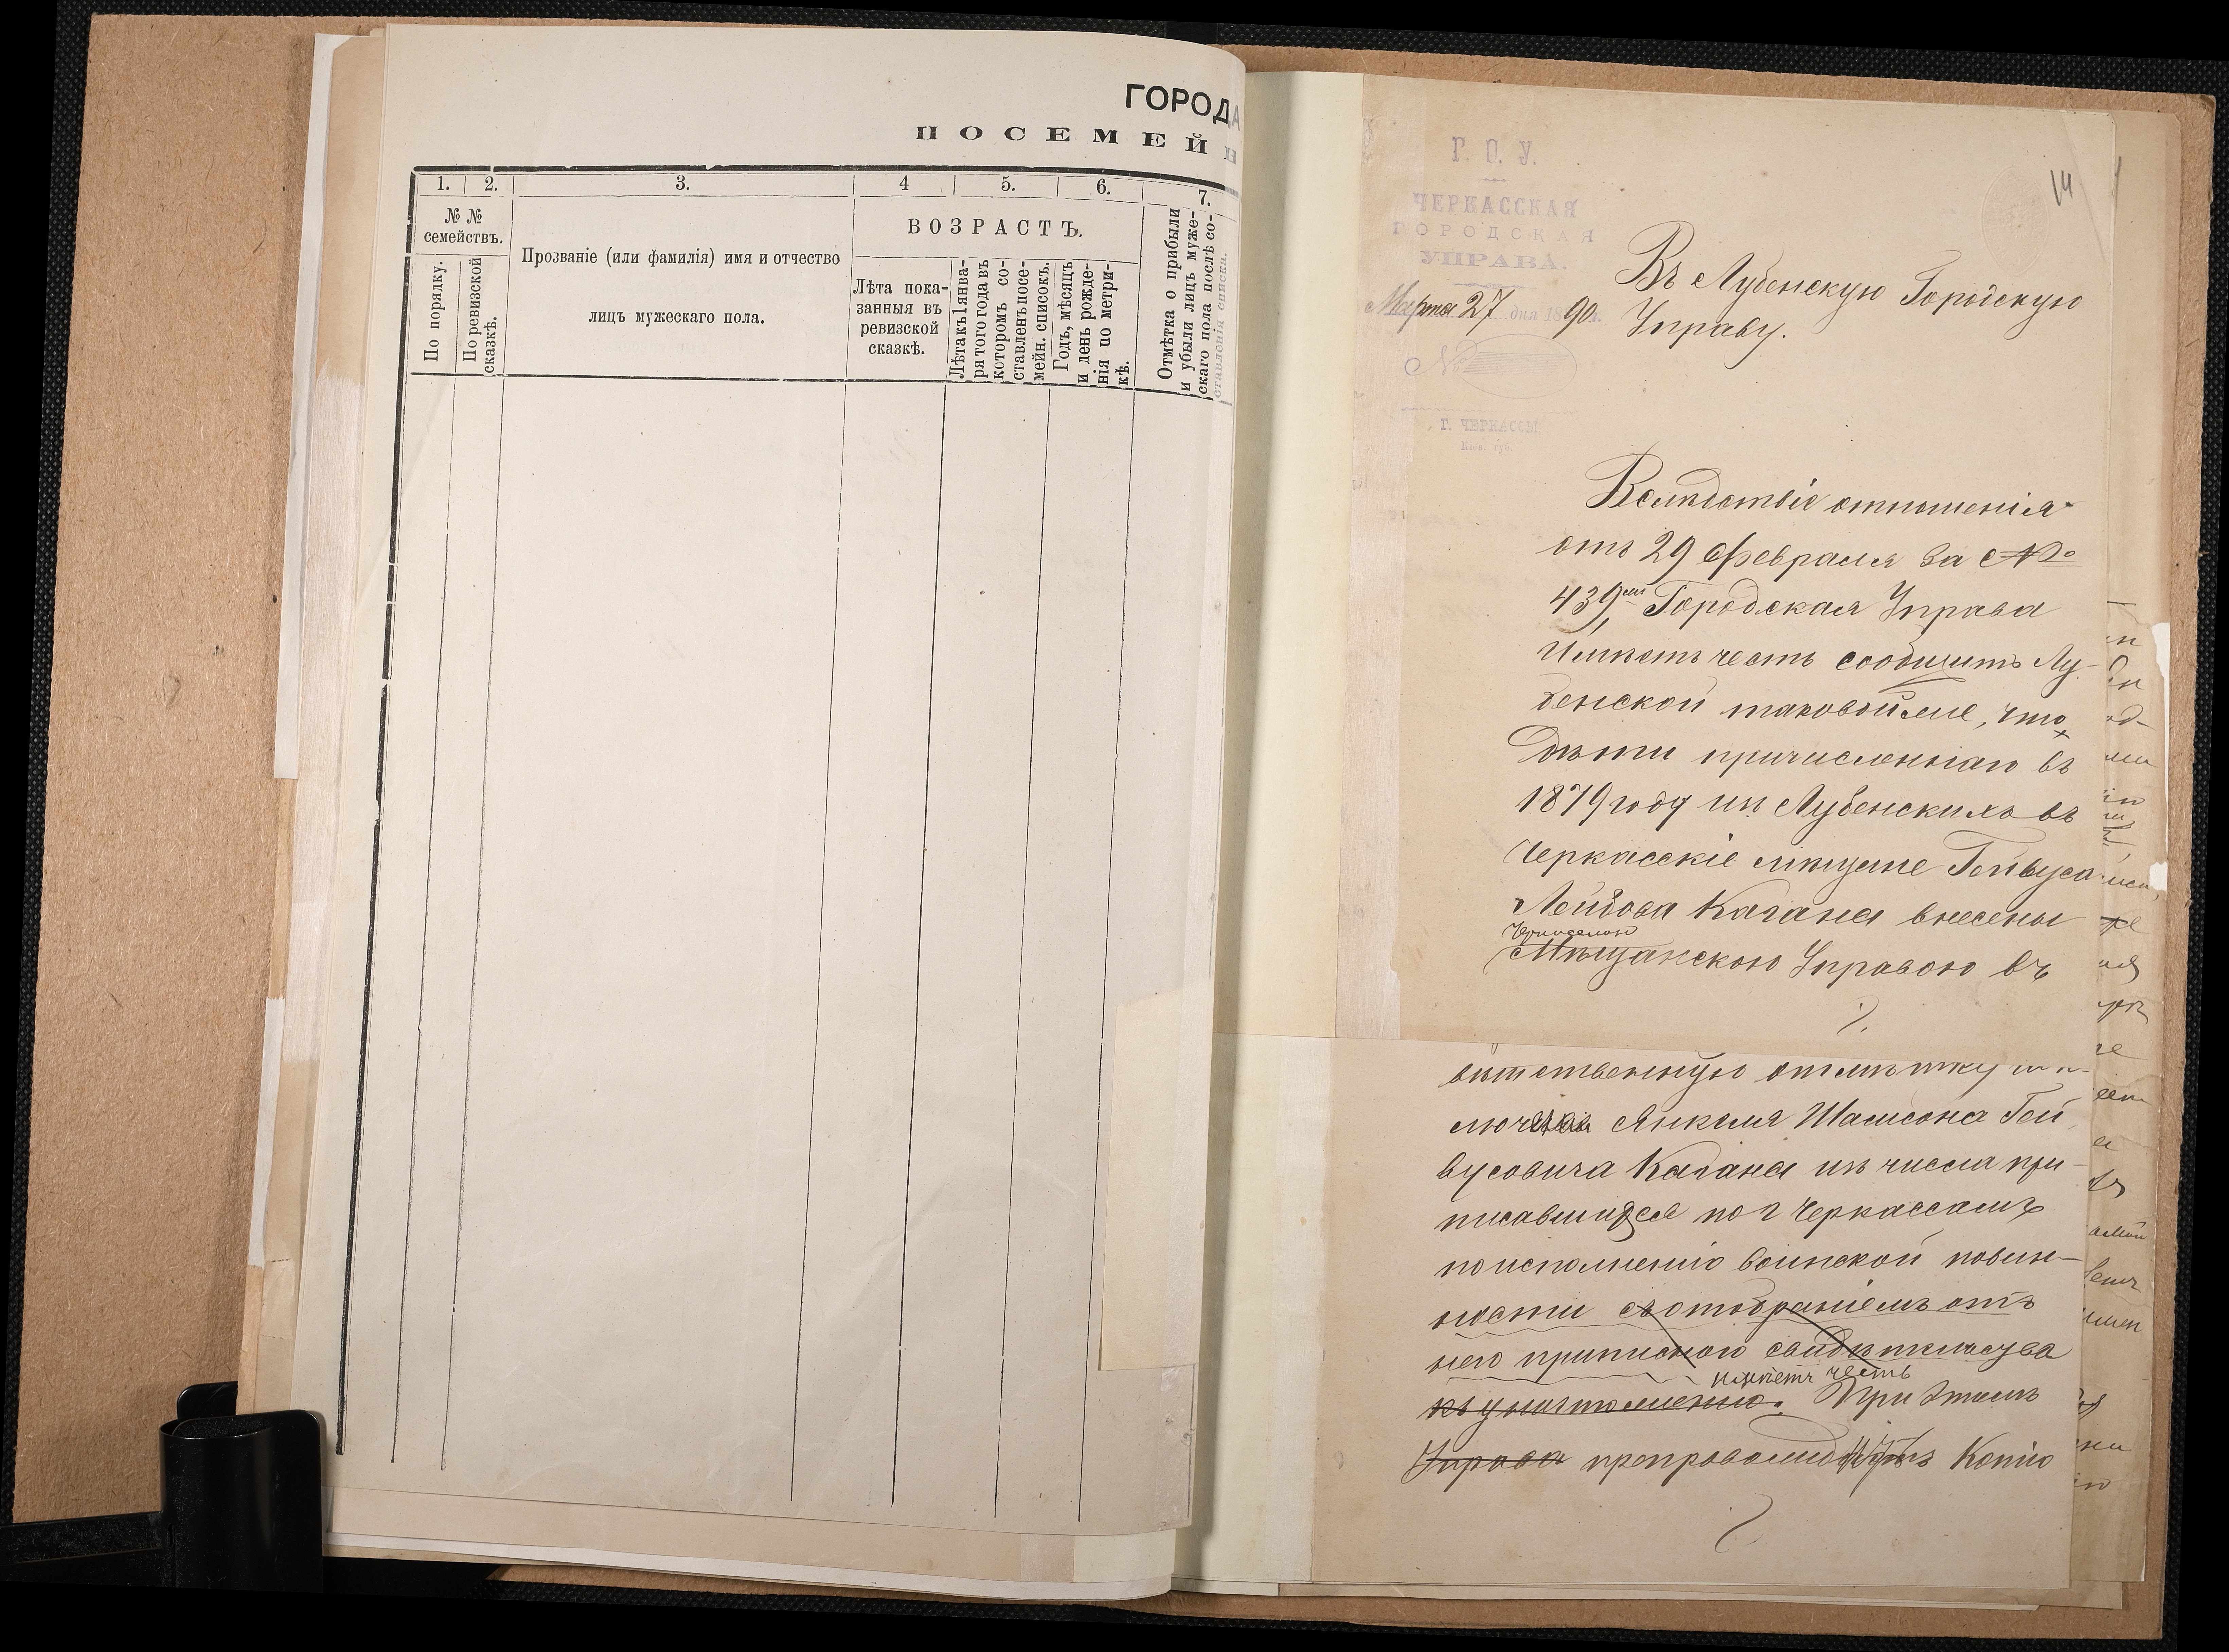 ГОРОДА
ПОСЕМЕЙН
1. 2. 3. 4 5. 6. 7.
№ №
семействъ.
По порядку.
По ревизской
сказкѣ.
Прозваніе (или фамилія) имя и отчество
лицъ мужескаго пола.
ВОЗРАСТЪ.
Лѣта пока-
занныя въ
ревизской
сказкѣ.
Лѣта къ 1 янва-
ря того года въ
которомъ со-
ставленъ посе-
мейн. списокъ.
Годъ, мѣсяцъ
и день рожде-
нія по метри-
кѣ.
Отмѣтка о прибыли
и убыли лицъ муже-
скаго пола послѣ со-
ставленія списка.
Г. О. У.
ЧЕРКАССКАЯ
ГОРОДСКАЯ
УПРАВА.
Марта 27 дня 1890 г.
№
Г. ЧЕРКАССЫ
Кіев. губ.
14
Въ Лубенскую Городскую
Управу.
Вслѣдствіе отношенія
отъ 29 Февраля за №
439, Городская Управа
Имѣетъ честь сообщить Лу-
бенской таковой же, что
Дѣти причисленнаго въ
1879 году изъ Лубенскихъ въ
Черкасскіе мѣщане Гейвуса
Лейбова Кагана внесены
Мѣщанскою Управою въ
вѣтственную отмѣтку
Янкеля Шамсона Гей
вусовича Кагана изъ числа при-
писавшихся по г Черкассамъ
по исполненію воинской повин-
ности съ отобраніемъ отъ
него приписного свидѣтельства
имѣетъ честь
къ уничтоженію. При этомъ
Управа копію